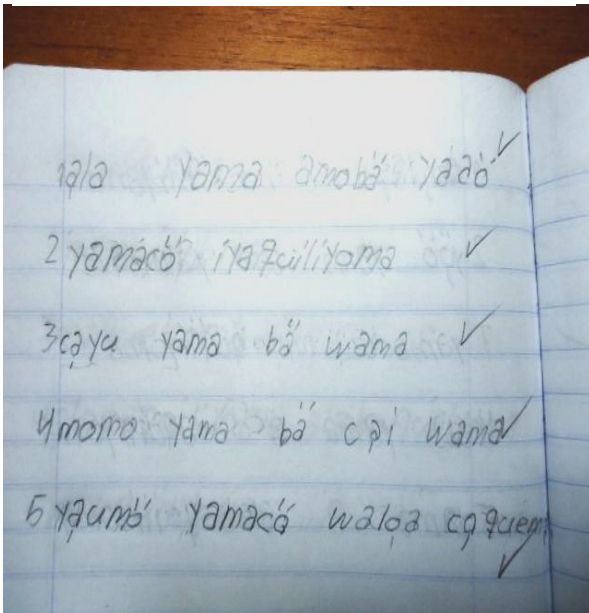 1 ala yama amobä́ yádö́
2 yamácö́ iyaquiliyoma
3 cạyu yama bä́ wama
4 momo yama bä́ cại wama
5 yạumö́ yamacä́ walọa cạquem